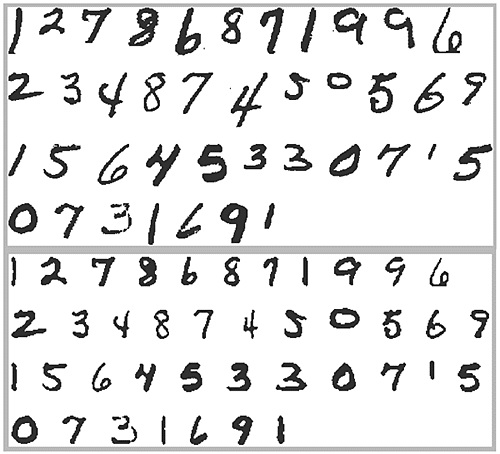 1 2 7 8 6 8 7 1 9 9 6
2 3 4 8 7 4 5 0 5 6 9
1 5 6 4 5 3 3 0 7 1 5
0 7 3 1 6 9 1
1 2 7 8 6 8 7 1 9 9 6
2 3 4 8 7 4 5 0 5 6 9
1 5 6 4 5 3 3 0 7 1 5
0 7 3 1 6 9 1